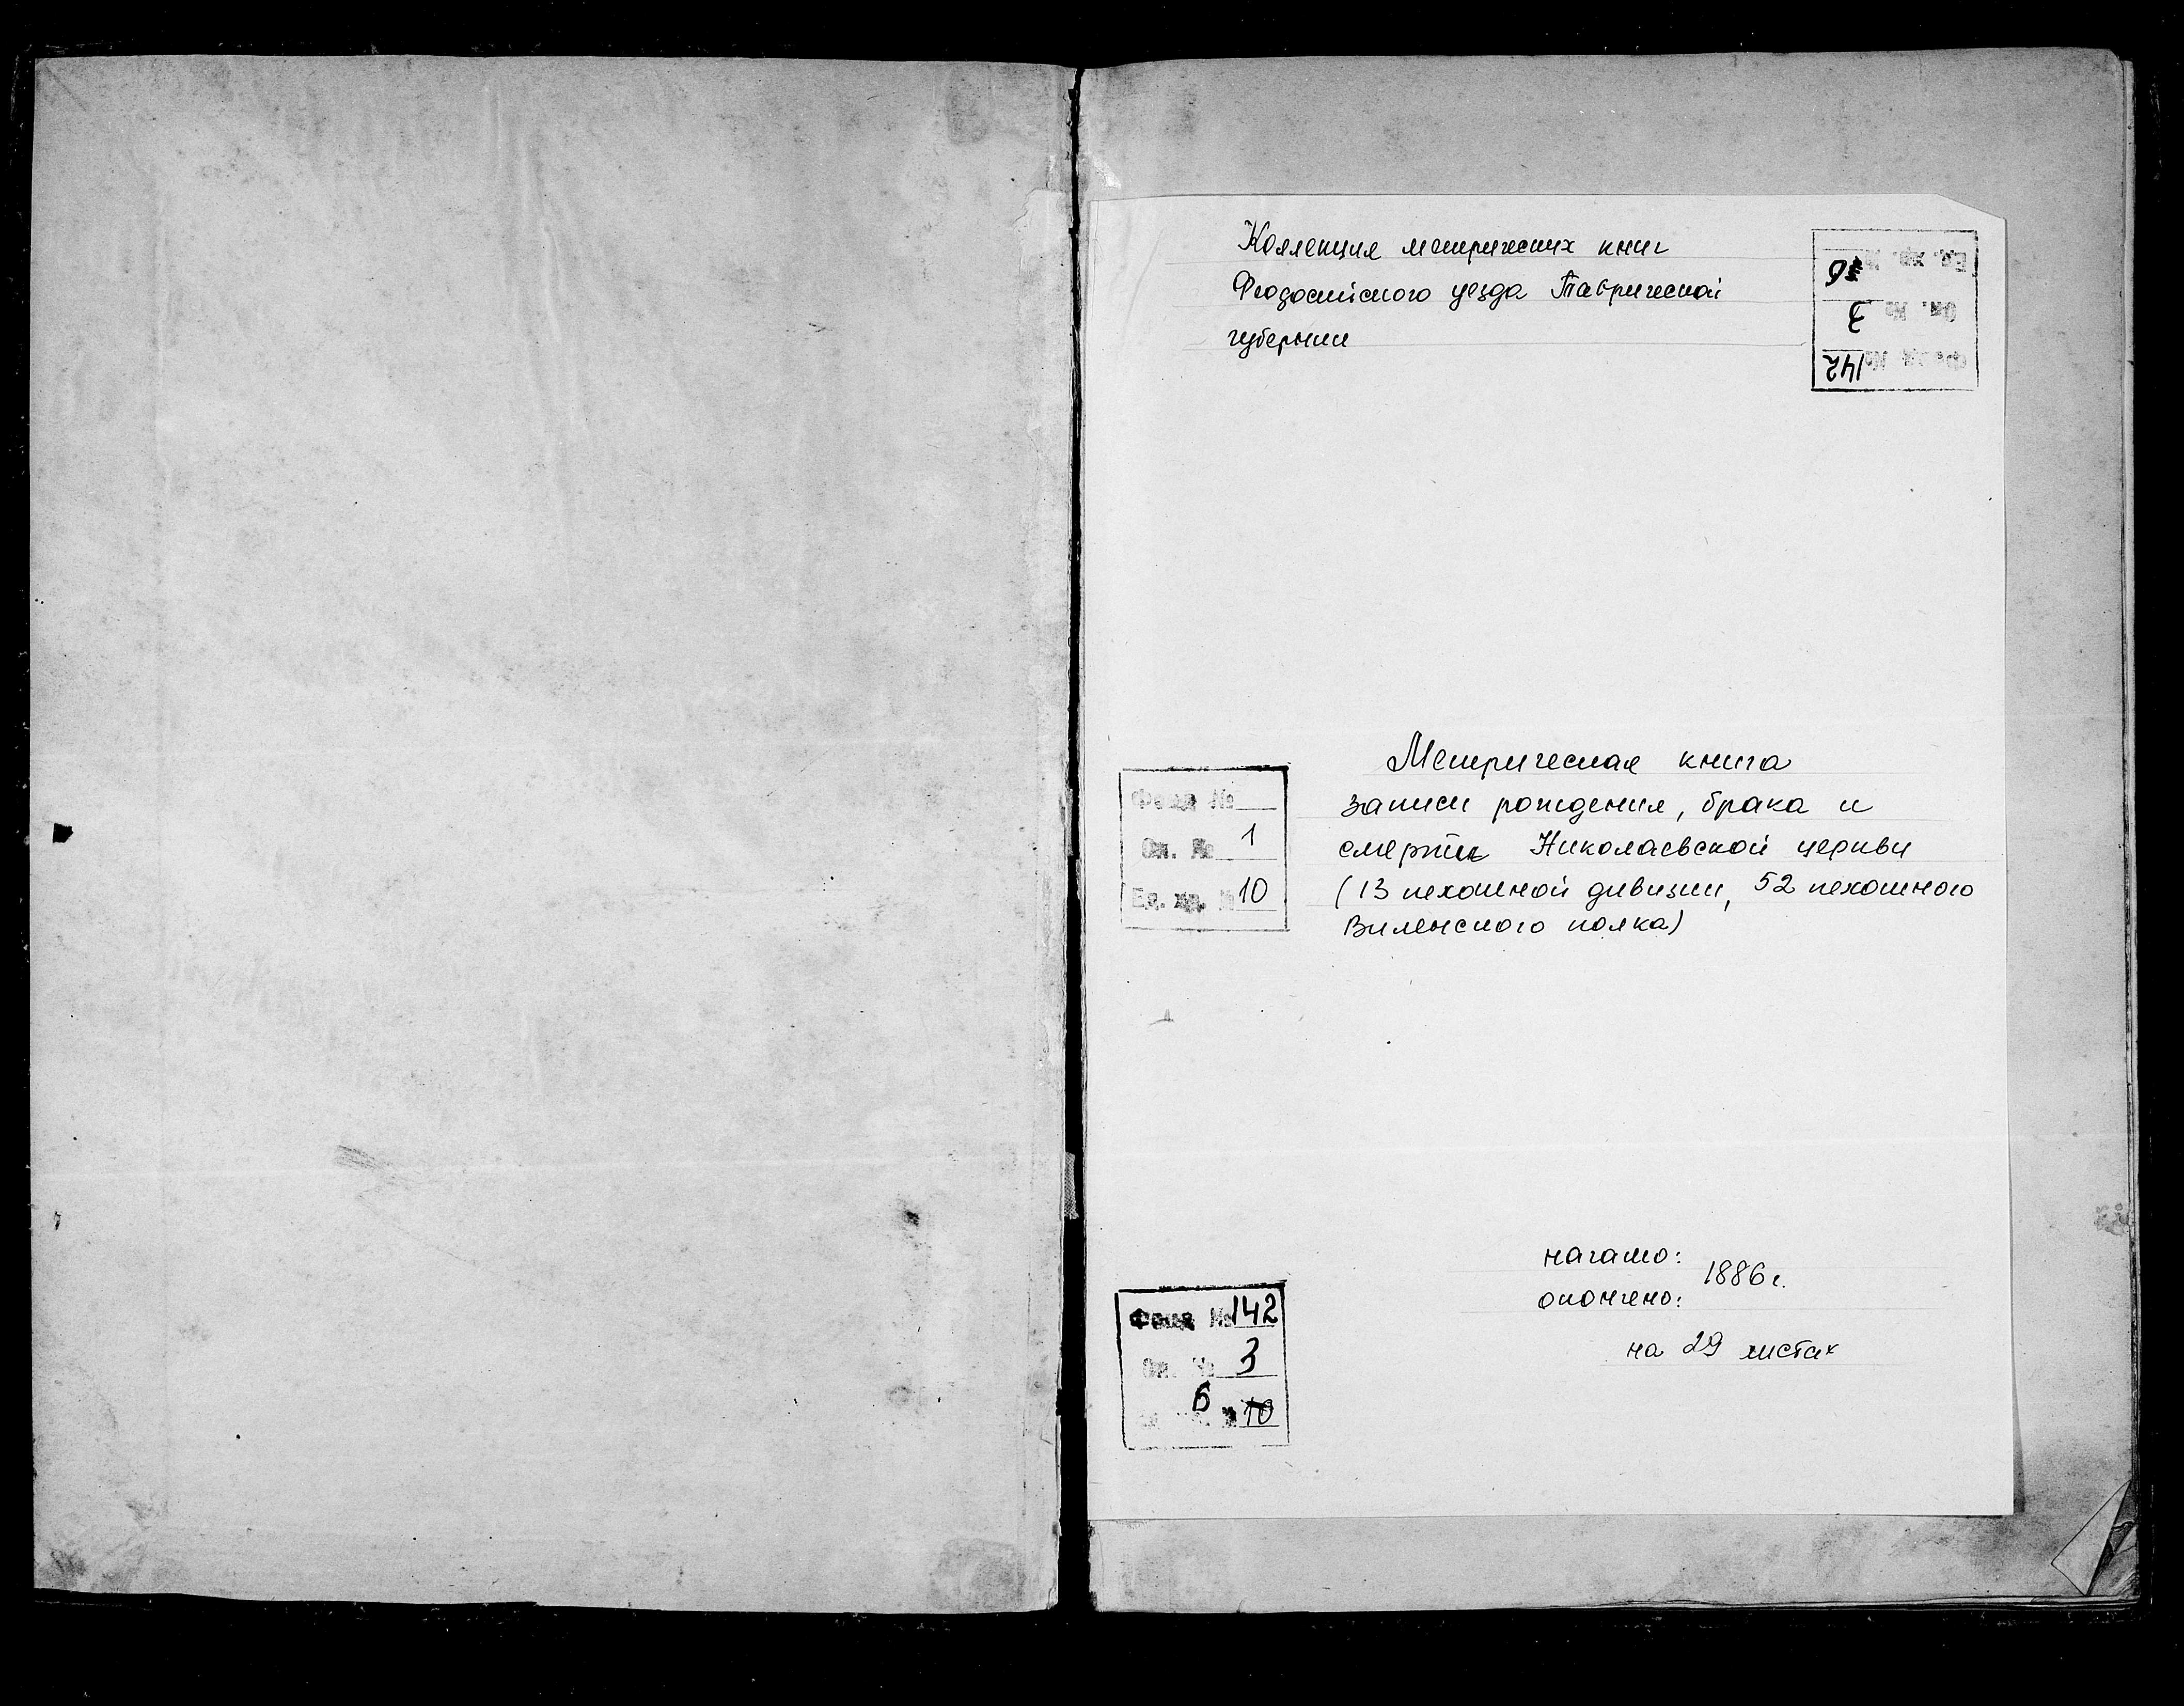 Коллекция метрических книг
Феодосийского уезда Таврической
губернии
Фонд № 142
Оп. № 3
Ед. хр. № 6
Метрическая книга
записи рождения, брака и
смерти Николаевской церкви
(13 пехотной дивизии, 52 пехотного
Виленского полка)
Фонд №
Оп. № 1
Ед. хр. № 10
начало:
1886 г.
окончено:
на 29 листах
Фонд № 142
Оп. № 3
6
№ 10